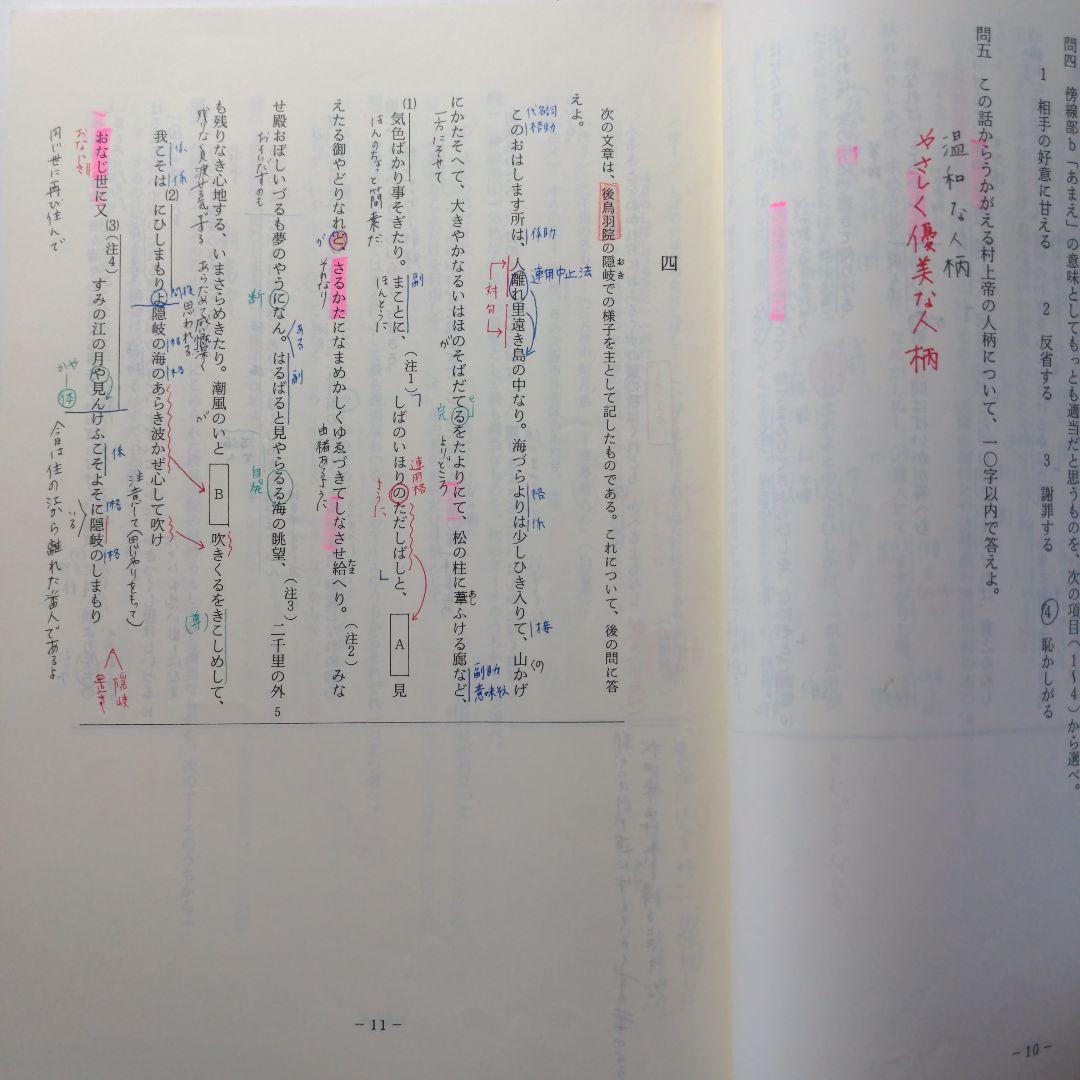 問四 傍線部b「あまえ」の意味としてもっとも適当だと思うものを、次の項目(1~4)から選べ。
1 相手の好意に甘える 2 反省する 3 謝罪する ④ 恥かしがる
問五 この話からうかがえる村上帝の人柄について、一〇字以内で答えよ。
温和な人柄
やさしく優美な人柄
-10-
四
次の文章は、後鳥羽院の隠岐での様子を主として記したものである。これについて、後の問に答
おき
えよ。
このおはします所は、人離れ里遠き島の中なり。海づらよりは少しひき入りて、山かげ
代名詞
格助
係助
連用中止法
対句
格
係
接
(の)
にかたそへて、大きやかなるいはほのそばだてるをたよりにて、松の柱に葦ふける廊など、
あし
一方にそせて
が
完
よりどころ
副助
意味状
(1)気色ばかり事そぎたり。まことに、(注1)しばのいほりのただしばしと、 A 見
ほんのちょっと簡素だ
副
ほんとうに
連用格
ように
えたる御やどりなれど、さるかたになまめかしくゆゑづきてしなさせ給へり。(注2)みな
たま
が
それなり
由緒あるように
せ殿おぼしいづるも夢のやうになん。はるばると見やらるる海の眺望、(注3)二千里の外
おもいだすのも
断
ある
副
自発
5
も残りなき心地する、いまさらめきたり。潮風のいと B 吹きくるをきこしめして、
残りなく見渡せる
あらためて感慨深く
思われる
が
(尊)
我こそは(2)にひしまもりよ隠岐の海のあらき波かぜ心して吹け
係
係
間投
格
格
注意して(思いやりをもって)
おなじ世に又(3)(注4)すみの江の月や見んけふこそよそに隠岐のしまもり
おなじき
かや
体
係
格
格
いる
隠岐
置き
同じ世に再び住んで
今日は住の江から離れた番人であるよ
-11-